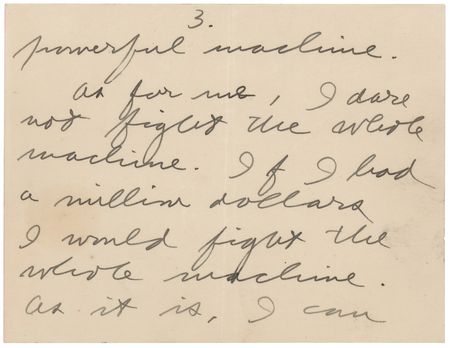 3.
powerful machine.
As for me, I dare
not fight the whole
machine. If I had
a million dollars
I would fight the
whole machine.
As it is, I can